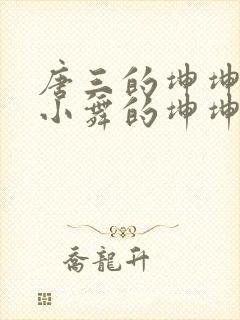 唐三的坤坤
小舞的坤坤
乔龍升